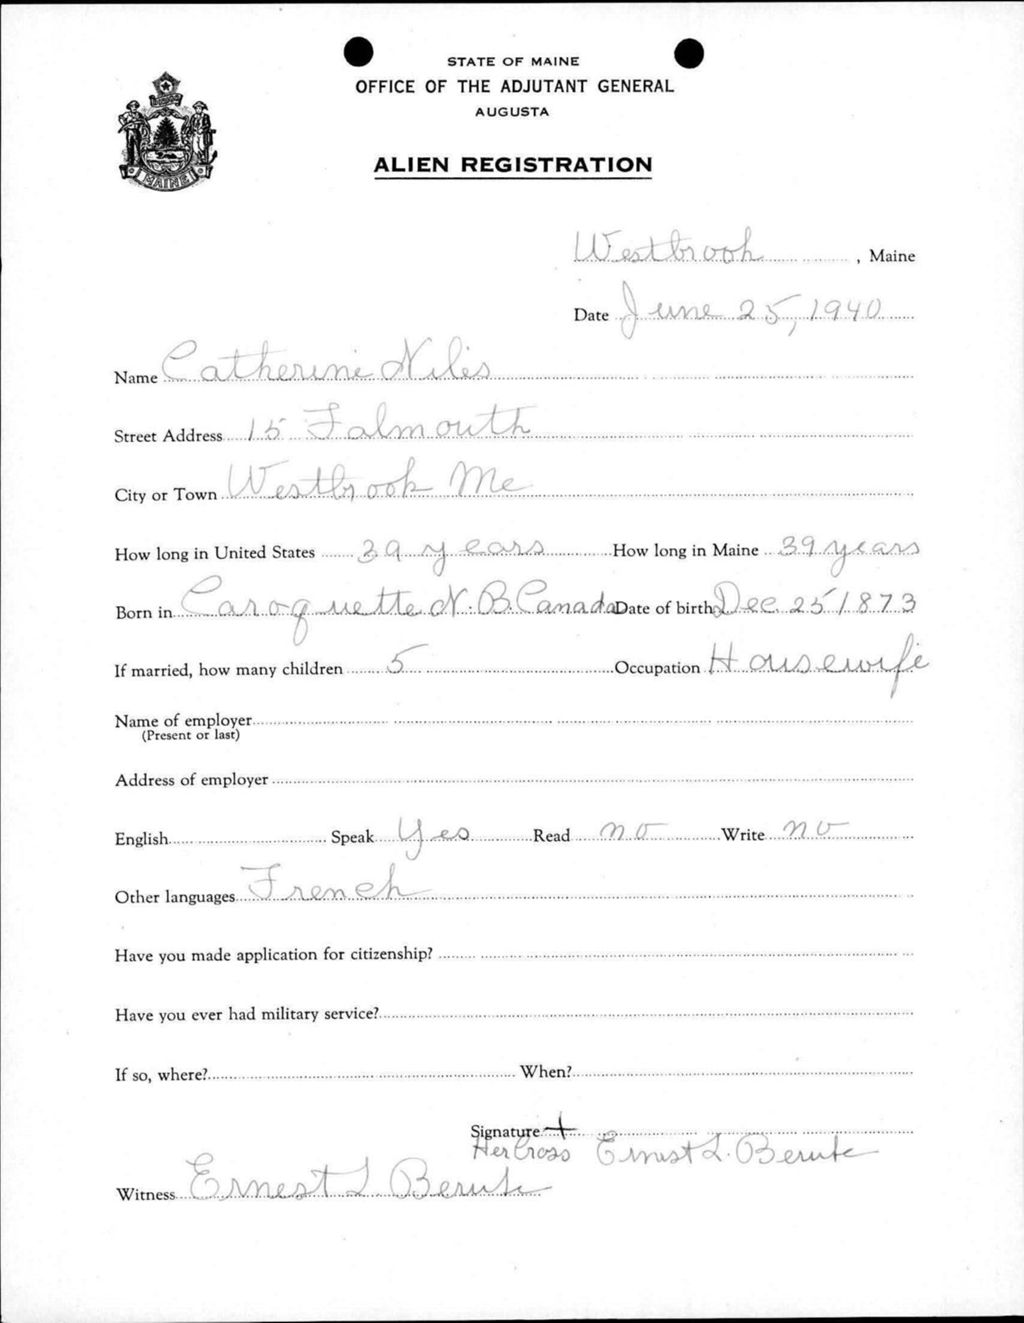 STATE OF MAINE
OFFICE OF THE ADJUTANT GENERAL
AUGUSTA
ALIEN REGISTRATION
MAINE
Westbrook, Maine
Date June 25, 1940
Name Catherine Niles
Street Address 15 Falmouth
City or Town Westbrook Me
How long in United States 39 years How long in Maine 39 years
Born in Caroquette N.B. Canada Date of birth Dec 25 1873
If married, how many children 5 Occupation Housewife
Name of employer
(Present or last)
Address of employer
English Speak Yes Read no Write no
Other languages French
Have you made application for citizenship?
Have you ever had military service?
If so, where? When?
Signature +
Her Cross Ernest L. Berube
Witness Ernest L Berube